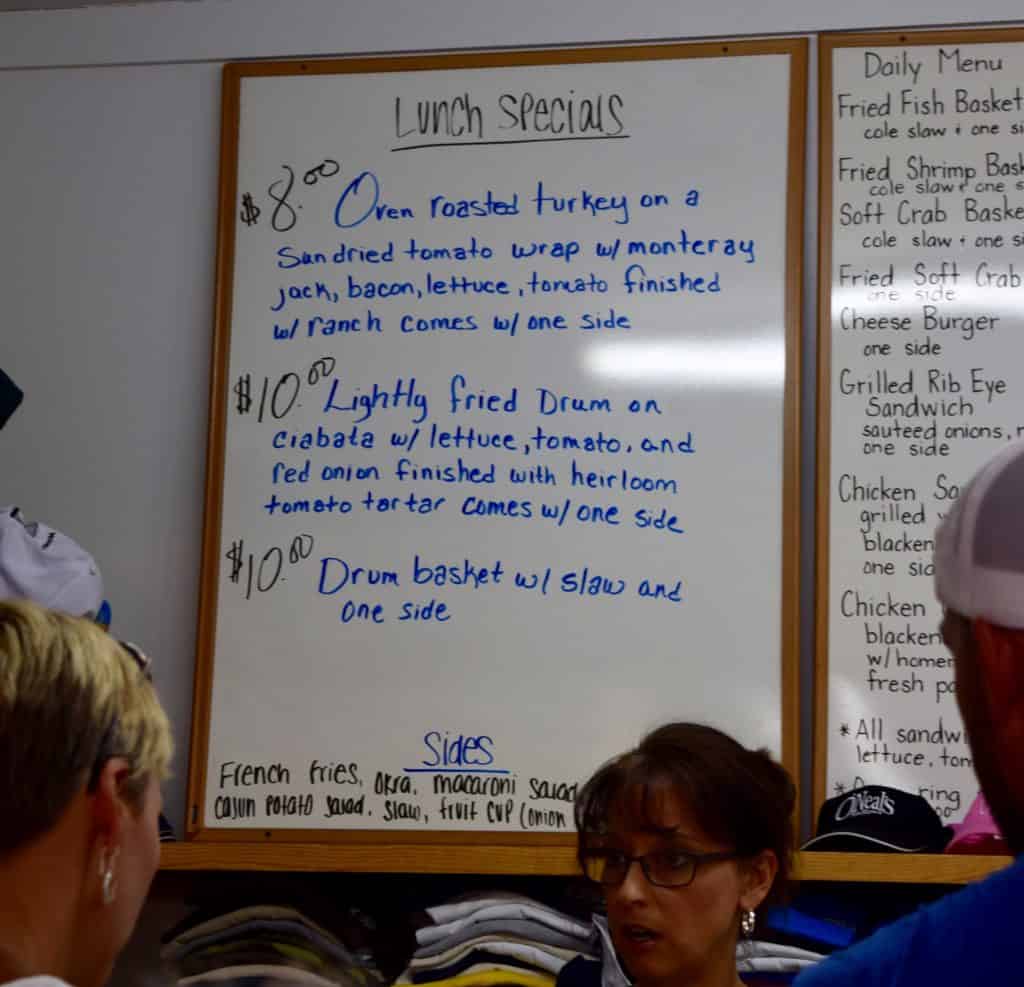 Lunch Specials
$8.00 Oven roasted turkey on a
Sundried tomato wrap w/ monteray
jack, bacon, lettuce, tomato finished
w/ ranch comes w/ one side
$10.00 Lightly fried Drum on
ciabata w/ lettuce, tomato, and
red onion finished with heirloom
tomato tartar comes w/ one side
$10.00 Drum basket w/ slaw and
one side
Sides
French fries, okra, macaroni salad
cajun potato salad, slaw, fruit cup (onion
Daily Menu
Fried Fish Basket
cole slaw + one
Fried Shrimp
cole slaw + one
Soft Crab
cole slaw + one
Fried Soft Crab
one side
Cheese Burger
one side
Grilled Rib Eye
Sandwich
sauteed onions,
one side
Chicken
grilled
one
Chicken
w/
fresh
*All
lettuce,
ring
O'Neals